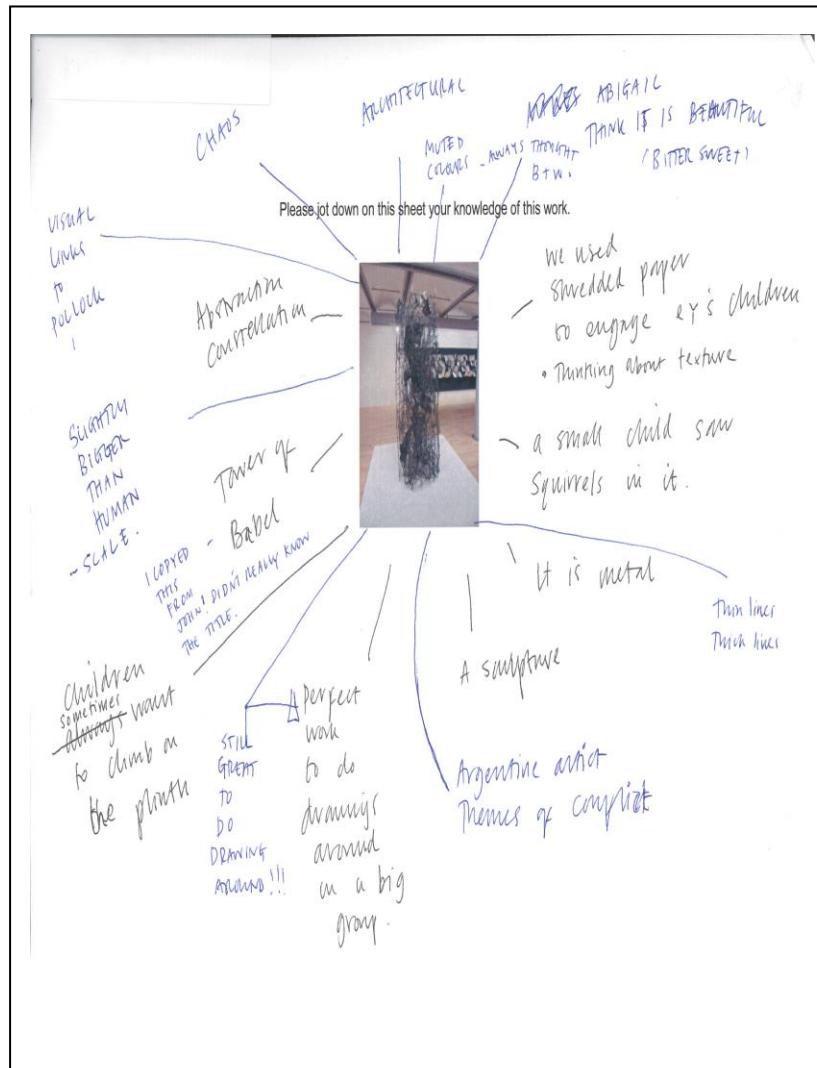 CHAOS
ARCHITECTURAL
MUTED
COLOURS
- AWAYS THOUGHT
B+W.
ABIGAIL
THINK IT IS BEAUTIFUL
(BITTER SWEET)
Please jot down on this sheet your knowledge of this work.
VISUAL
LINKS
to
POLLOCK
Abstraction
Constellation
we used
shredded paper
to engage EY's children
• Thinking about texture
SLIGHTLY
BIGGER
THAN
HUMAN
- SCALE.
Tower of
Babel
a small child saw
Squirrels in it.
- I COPYED
THIS
FROM
JOHN! DIDN'T REALLY KNOW
THE TITLE.
It is metal
Thin lines
Thick lines
A sculpture
Children
sometimes
always want
to climb on
the plinth
STILL
GREAT
TO
DO
DRAWING
AROUND!!!
Perfect
work
to do
drawings
around
in a big
group.
Argentine artist
Themes of conflict